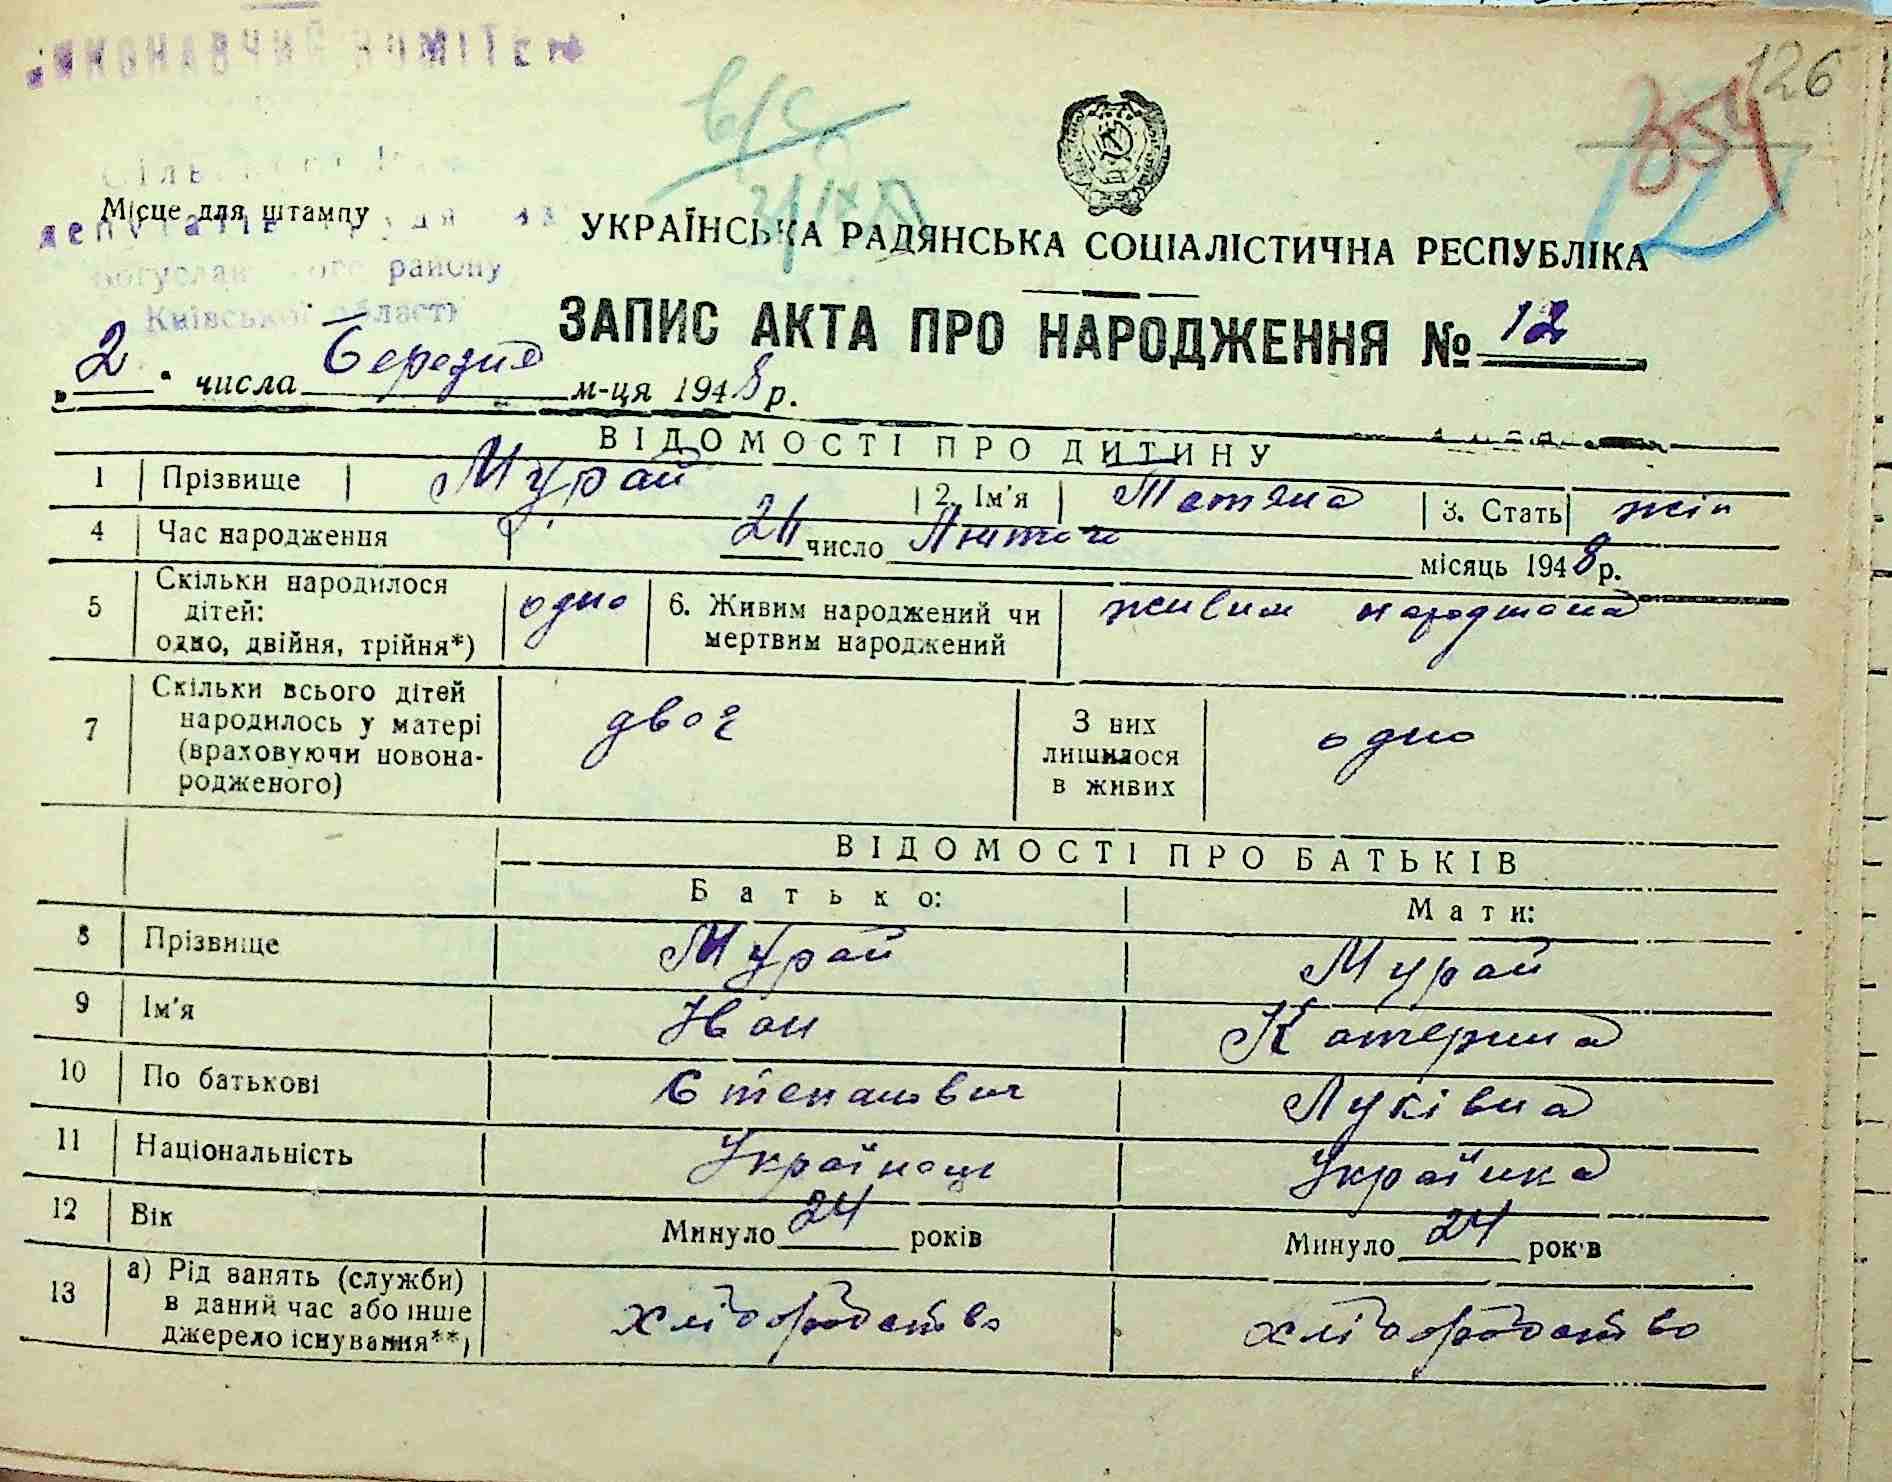 126
354
12
Місце для штампу
районy
Київської області
УКРАЇНСЬКА РАДЯНСЬКА СОЦІАЛІСТИЧНА РЕСПУБЛІКА
ЗАПИС АКТА ПРО НАРОДЖЕННЯ № 12
„2" числа Березня м-ця 1948 р.
ВІДОМОСТІ ПРО ДИТИНУ
1 Прізвище Мурай 2. Ім'я Тетяна 3. Стать жін
4 Час народження число Лютого місяць 1948 р.
5 Скільки народилося дітей: одно, двійня, трійня*) одно 6. Живим народжений чи мертвим народжений живим народжена
7 Скільки всього дітей народилось у матері (враховуючи новонародженого) двоє З них лишилося в живих одно
ВІДОМОСТІ ПРО БАТЬКІВ
Батько: Мати:
8 Прізвище Мурай Мурай
9 Ім'я Іван Катерина
10 По батькові Степанович Луківна
11 Національність Українець Українка
12 Вік Минуло 24 років Минуло 24 років
13 а) Рід занять (служби) в даний час або інше джерело існування**) хліборобство хліборобство